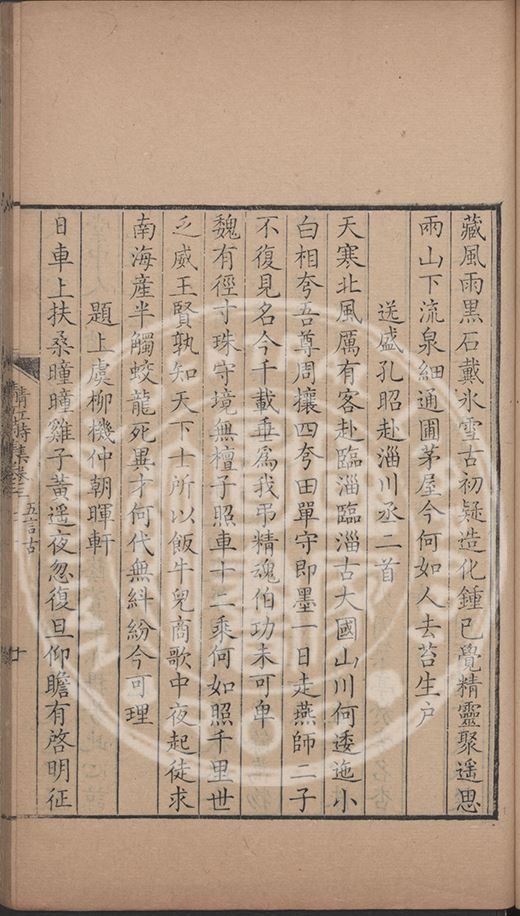 藏風雨黒石戴氷雪古初疑造化鍾已覺精靈聚遥思
兩山下流泉細通圃茅屋今何如人去苔生户
送盛孔昭赴淄川丞二首
天寒北風厲有客赴臨淄臨淄古大國山川何逶迤小
白相夸吾尊周攘四夸田單守即墨一日走燕師二子
不復見名今千載垂爲我弔精魂伯功未可卑
魏有徑寸珠守境無檀子照車十二乘何如照千里世
乏威王賢孰知天下士所以飯牛皃商歌中夜起徒求
南海産半觸蛟龍死異才何代無糾紛今可理
題上虞柳機仲朝暉軒
日車上扶桑曈曈雞子黃遥夜忽復旦仰瞻有啓明征
清江詩集卷三
五言古